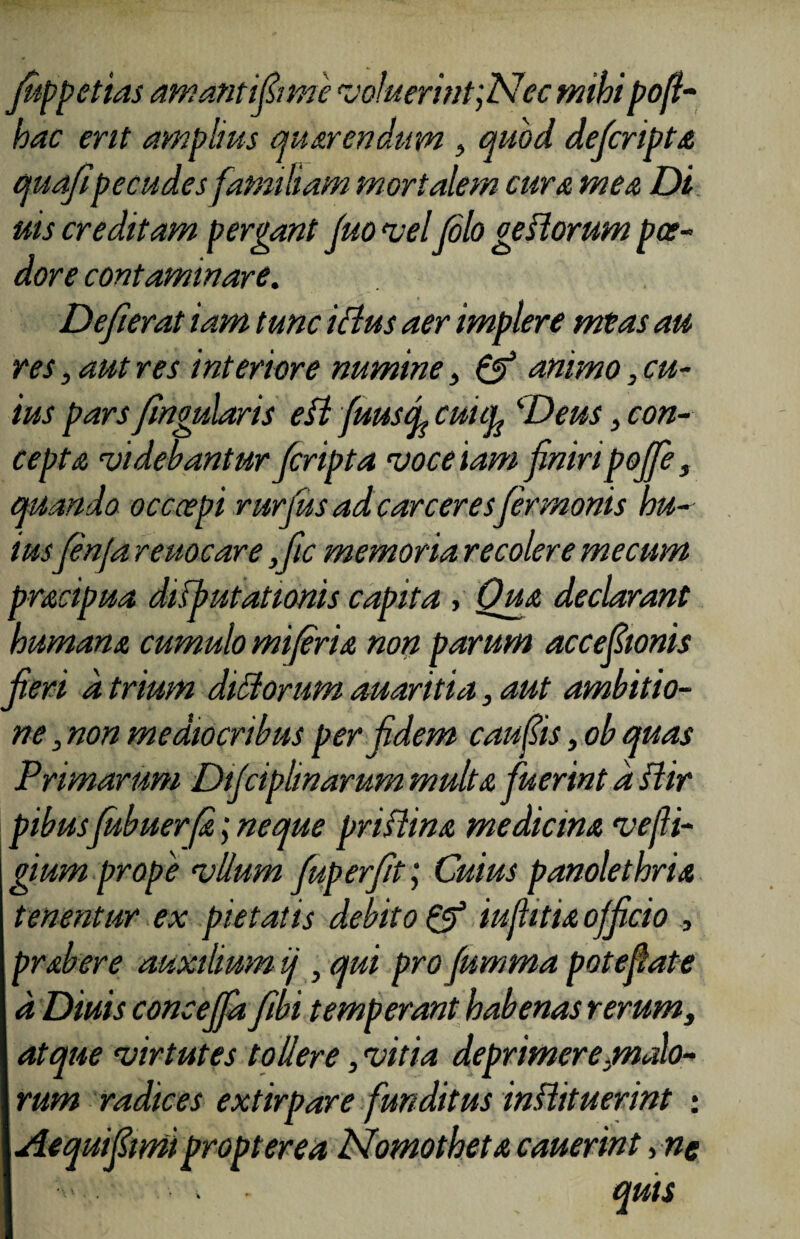 ſuppetias amantiſsime voluerint; Nec mihi poſt-
hac erit amplius quærendum, quòd deſcriptæ
quaſi pecudes familiam mortalem curæ meæ Di
uis creditam pergant ſuo vel ſolo geſtorum pœ-
dore contaminare.
Deſierat iam tunc ictus aer implere meas au
res, aut res interiore numine, & animo, cu-
ius pars ſingularis eſt ſuusq; cuiq; Deus, con-
cepta videbantur ſcripta voce iam finiri poſſe,
quando occœpi rurſus ad carceres ſermonis hu-
ius ſenſa reuocare, ſic memoria recolere mecum
præcipua diſputationis capita, Quæ declarant
humanæ cumulo miſeriæ non parum acceſsionis
fieri à trium dictorum auaritia, aut ambitio-
ne, non mediocribus per fidem cauſsis, ob quas
Primarum Diſciplinarum multæ fuerint à ſtir
pibus ſubuerſæ; neque priſtinæ medicinæ veſti-
gium propè vllum ſuperſit; Cuius panolethriæ
tenentur ex pietatis debito & iuſtitiæ officio,
præbere auxilium ij, qui pro ſumma poteſtate
à Diuis conceſſa ſibi temperant habenas rerum,
atque virtutes tollere, vitia deprimere, malo-
rum radices extirpare funditus inſtituerint:
Aequiſsimi propterea Nomothetæ cauerint, ne
quis